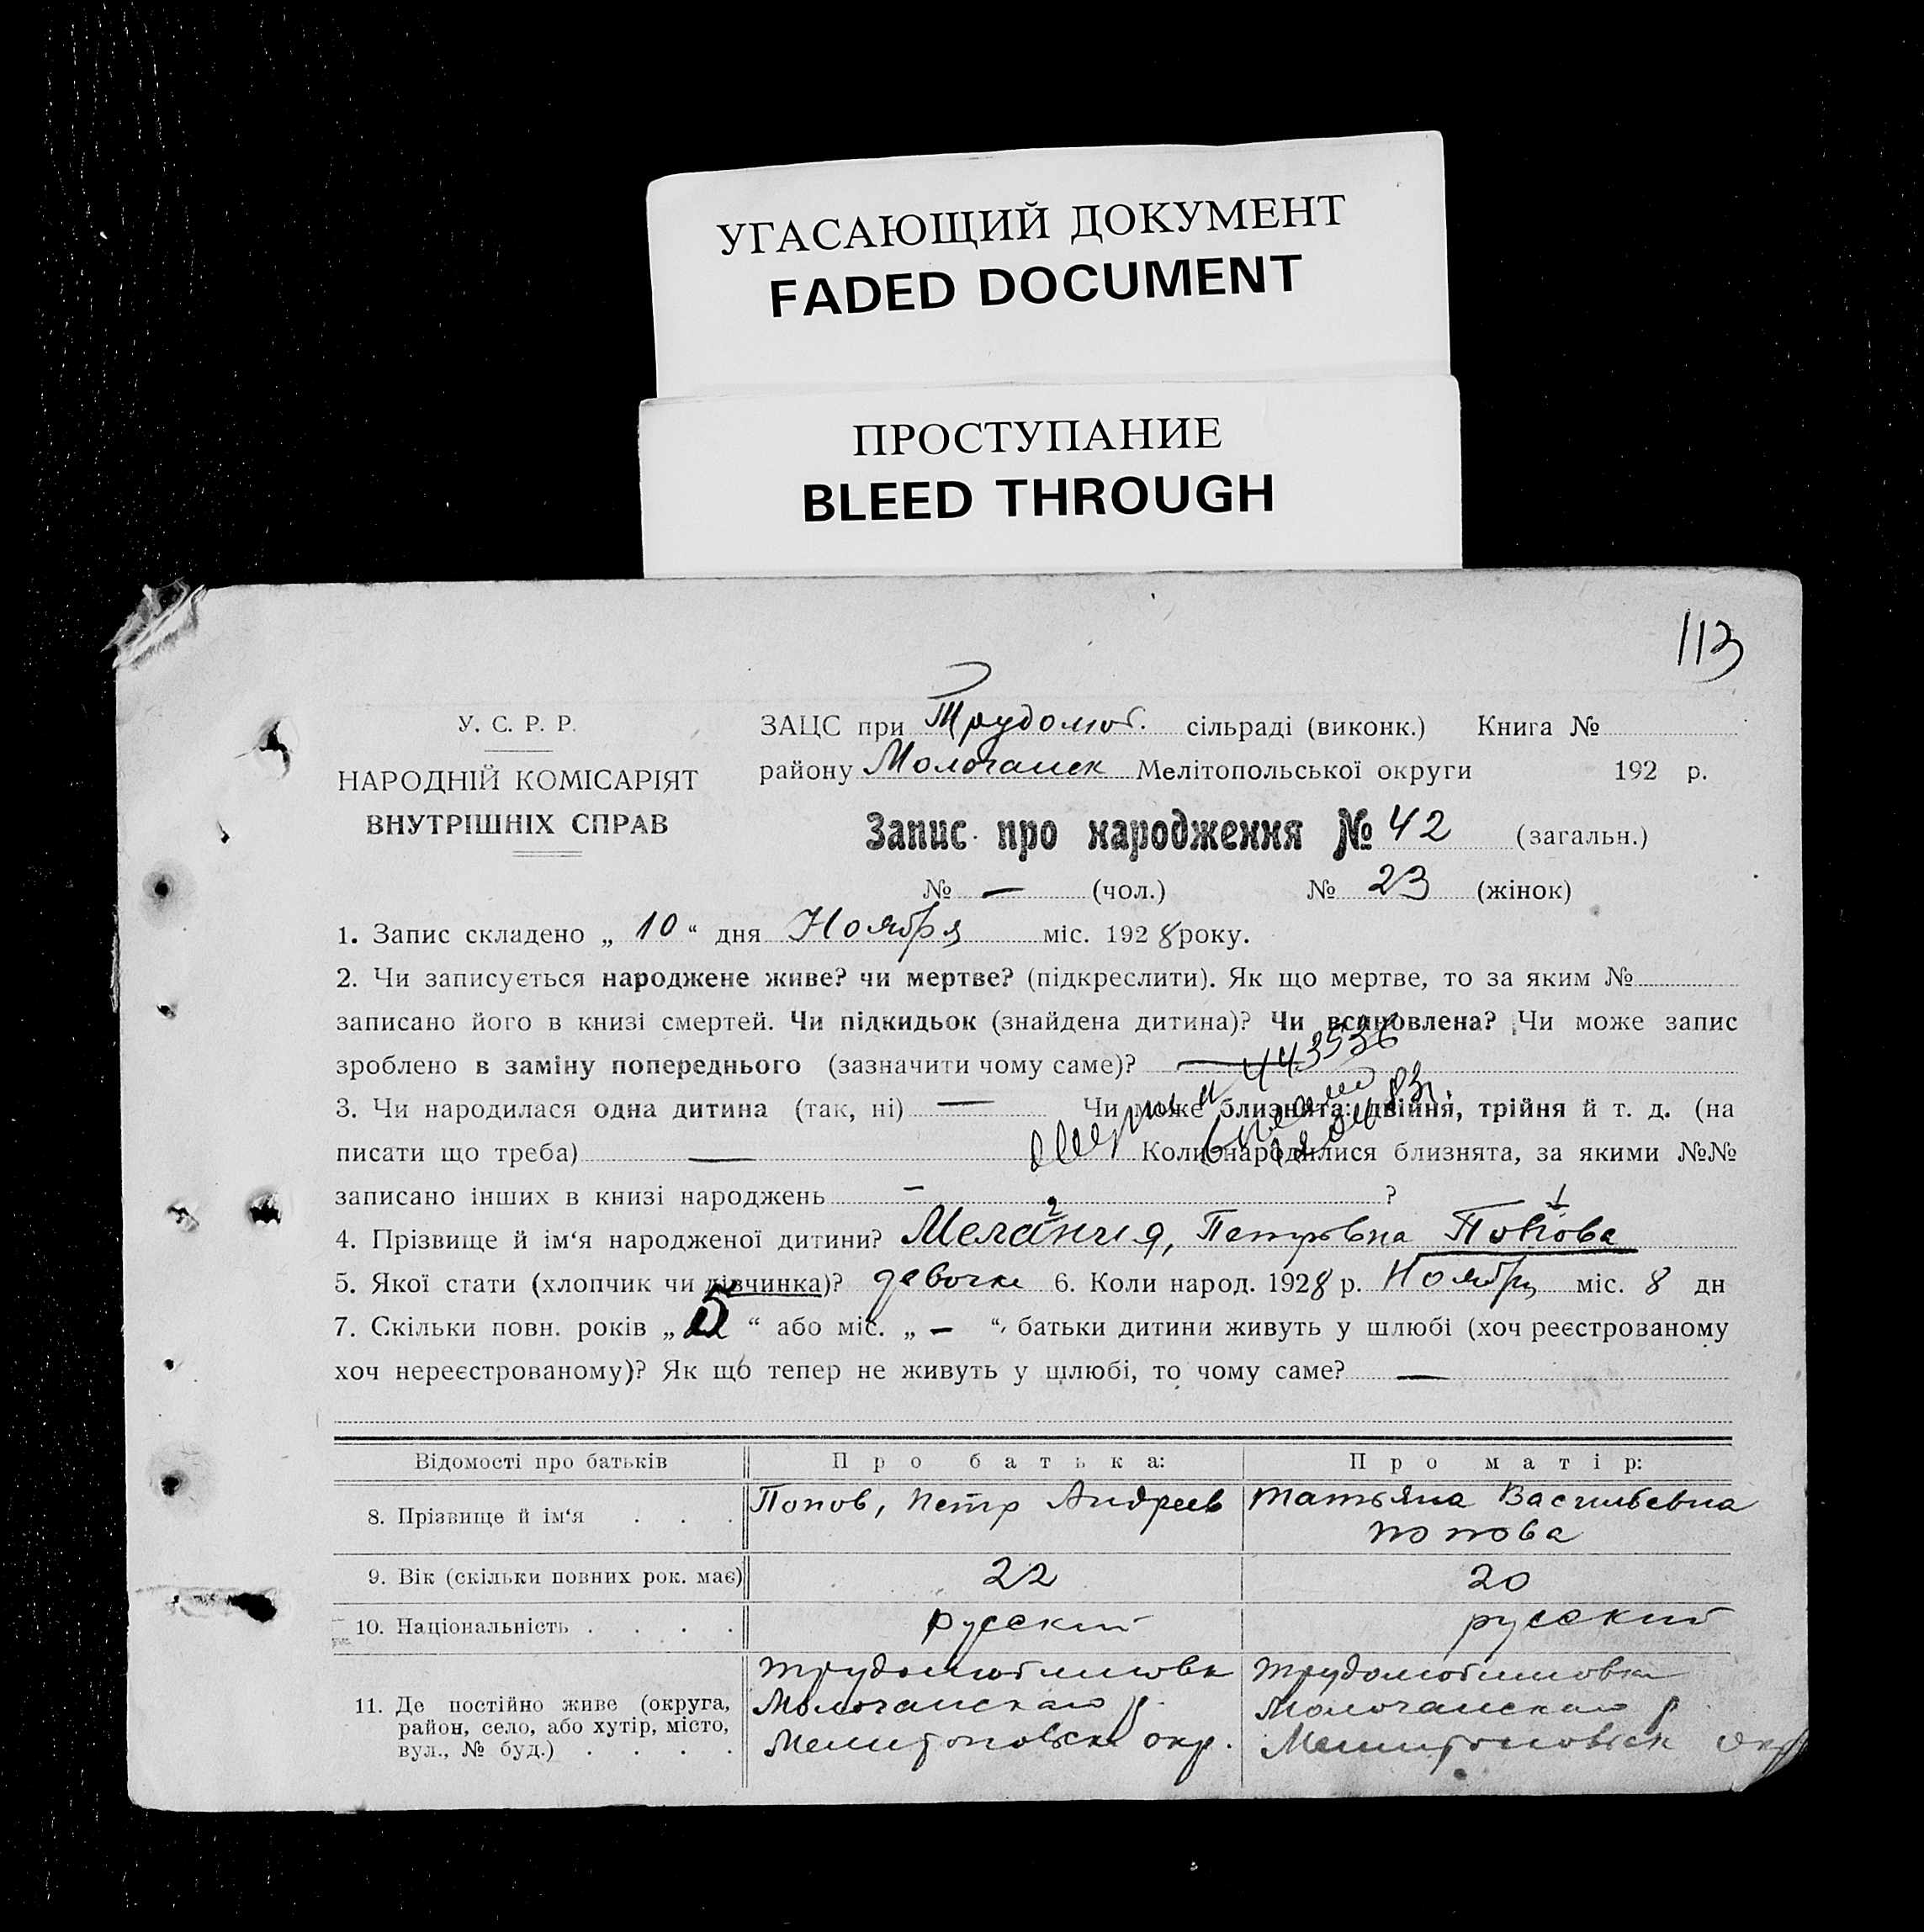 УГАСАЮЩИЙ ДОКУМЕНТ
FADED DOCUMENT
ПРОСТУПАНИЕ
BLEED THROUGH
113
У. С. Р. Р.
НАРОДНІЙ КОМІСАРІЯТ
ВНУТРІШНІХ СПРАВ
ЗАЦС при Трудолюб. сільраді (виконк.) Книга №
району Молочанск Мелітопольської округи 192 р.
Запис про народження № 42 (загальн.)
№ — (чол.) № 23 (жінок)
1. Запис складено „ 10 “ дня Ноября міс. 1928 року.
2. Чи записується народжене живе? чи мертве? (підкреслити). Як що мертве, то за яким №
записано його в книзі смертей. Чи підкидьок (знайдена дитина)? Чи всиновлена? Чи може запис
зроблено в заміну попереднього (зазначити чому саме)? —
443536
3. Чи народилася одна дитина (так, ні) — Чи може близнята: двійня, трійня й т. д. (на
писати що треба) — Коли народилися близнята, за якими №№
записано інших в книзі народжень — ?
4. Прізвище й ім‘я народженої дитини? Мелания, Петровна Попова
5. Якої стати (хлопчик чи дівчинка)? девочка 6. Коли народ. 1928 р. Ноября міс. 8 дн
7. Скільки повн. років „ “ або міс. „ — “, батьки дитини живуть у шлюбі (хоч реєстрованому
хоч нереєстрованому)? Як що тепер не живуть у шлюбі, то чому саме? —
Відомості про батьків Про батька: Про матір:
8. Прізвище й ім‘я . . . Попов, Петр Андреев Татьяна Васильевна
Попова
9. Вік (скільки повних рок. має) 22 20
10. Національність . . . . русский русский
11. Де постійно живе (округа,
район, село, або хутір, місто,
вул., № буд.) . . . .
Трудолюбимовка
Молочанскаго р.
Мелитопольск окр.
Трудолюбимовка
Молочанскаго р
Мелитопольск окр